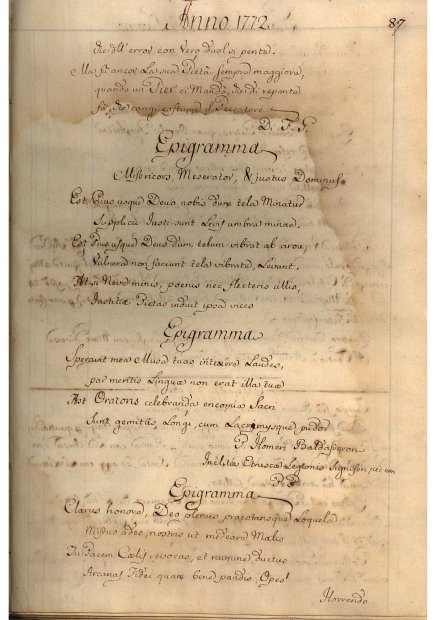 Anno 1772
87
che dell'error con vero duol si penta.
Ma fù ancor la sua Pietà sempre maggiore,
quando un Pier ci Mandò, che di repente
fà, che cangi costume il Peccatore
D. T. G.
Epigramma
Misericors Miserator, & justus Dominus.
Est Pius usque Deus nobis dum tela Minatur
Supplicii Justi sunt Levis umbra minae.
Est Pius usque Deus dum telum vibrat ab arcu,
Vulnera non faciunt tela vibrata, Levant.
At si Nevo minis, poenis nec flecteris ullis,
Justitiae Pietas induit ipsa vices
Epigramma
Speravit mea Musa tuas intexere Laudes,
par meritis Linguae non erat illa tuae
Ast Oratoris celebranda encomia Sacri
Sunt gemitus Longi, cum Lacrymisque pudor
P. Homeri Baldasseron
Etruscae Legionis
R. P.
Epigramma
Clarus honore, Deo plenus praestansque Loquela
adeo, nostro ut medeare Malo
Tu Pacem Coelis revocas, et numine ductus
Arcanas Fidei quam bene pandis Opes!
Horrendo